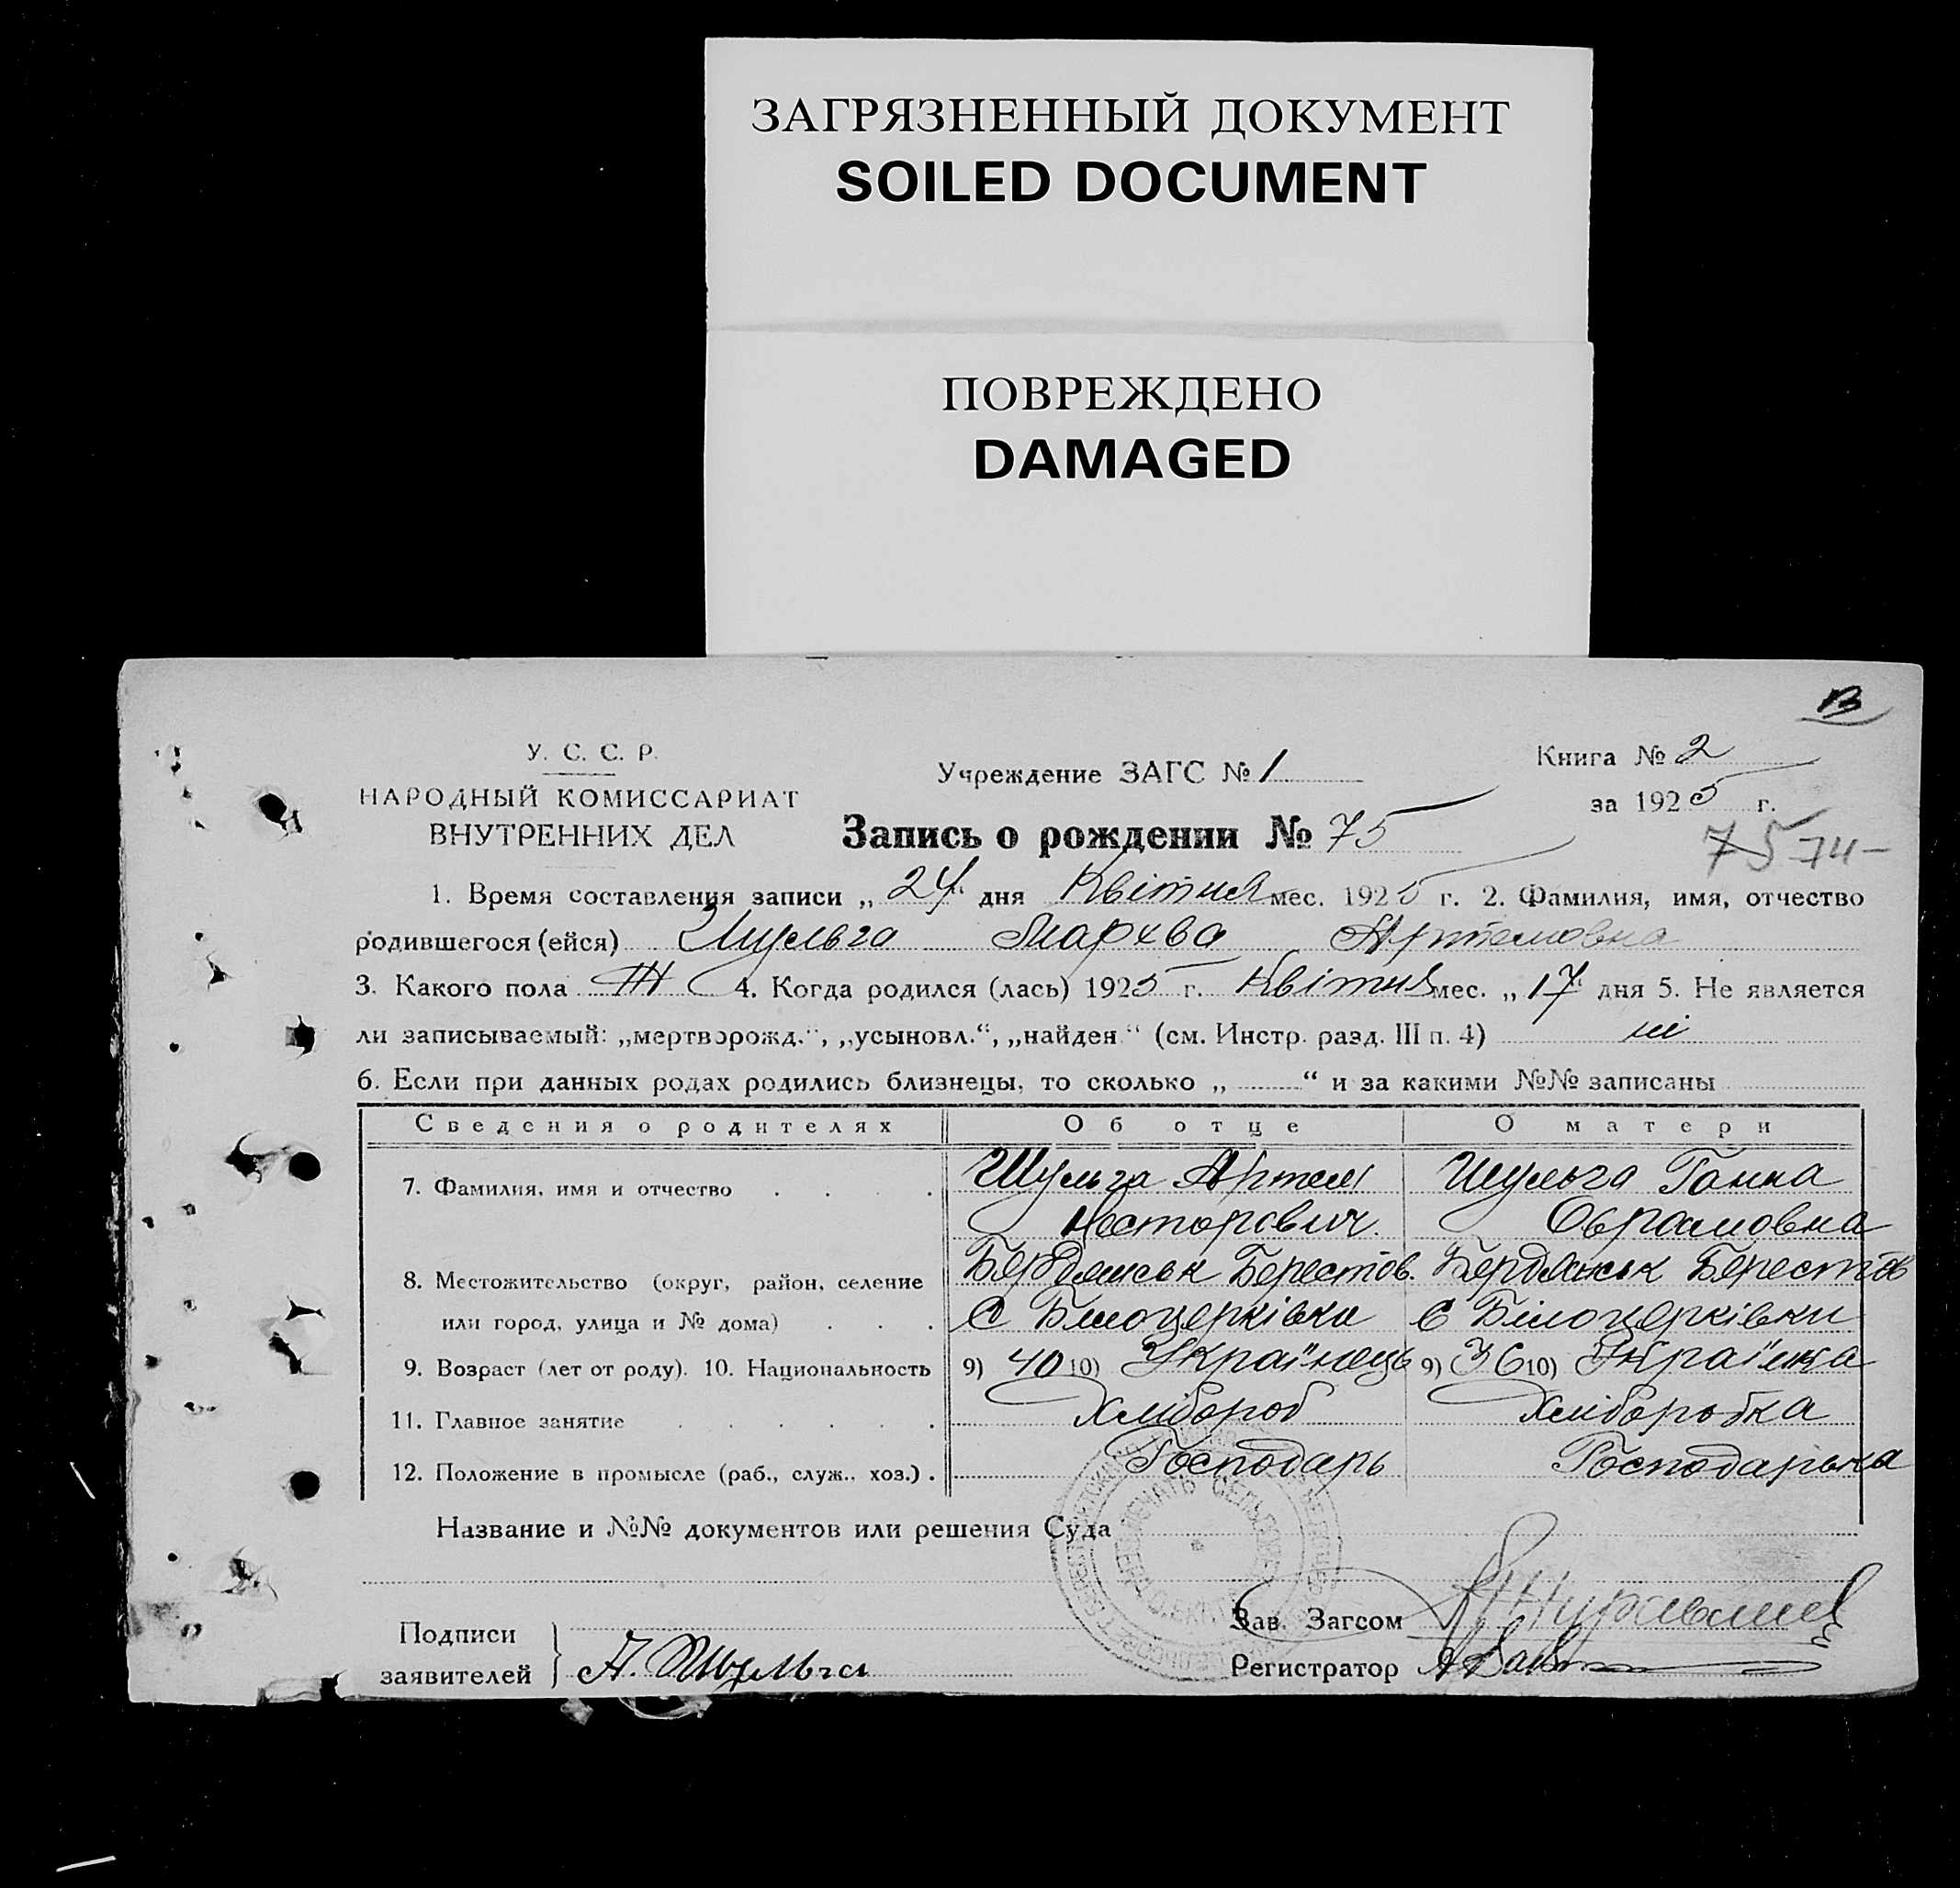 ЗАГРЯЗНЕННЫЙ ДОКУМЕНТ
SOILED DOCUMENT
ПОВРЕЖДЕНО
DAMAGED
В
У. С. С. Р.
НАРОДНЫЙ КОМИССАРИАТ
ВНУТРЕННИХ ДЕЛ
Учреждение ЗАГС № 1
Книга № 2
за 1925 г.
Запись о рождении № 75
75 74
1. Время составления записи „24“ дня Квітня мес. 1925 г. 2. Фамилия, имя, отчество
родившегося (ейся) Шульга Мархва Артемовна
3. Какого пола Ж 4. Когда родился (лась) 1925 г. Квітня мес. „17“ дня 5. Не является
ли записываемый: „мертворожд.“, „усыновл.“, „найден“ (см. Инстр. разд. III п. 4) ні
6. Если при данных родах родились близнецы, то сколько „ “ и за какими №№ записаны
Сведения о родителях Об отце О матери
7. Фамилия, имя и отчество Шульга Артем Шульга Ганна
Несторович Оврамовна
8. Местожительство (округ, район, селение Бердянськ Берестов. Бердянськ Берестов
или город, улица и № дома) С Білоцерківка С Білоцерківки
9. Возраст (лет от роду). 10. Национальность 9) 40 10) Українець 9) 36 10) Українка
11. Главное занятие Хлібороб Хліборобка
12. Положение в промысле (раб., служ., хоз.) Господарь Господарька
Название и №№ документов или решения Суда
Зав. Загсом
Подписи
заявителей А. Шульга
Регистратор